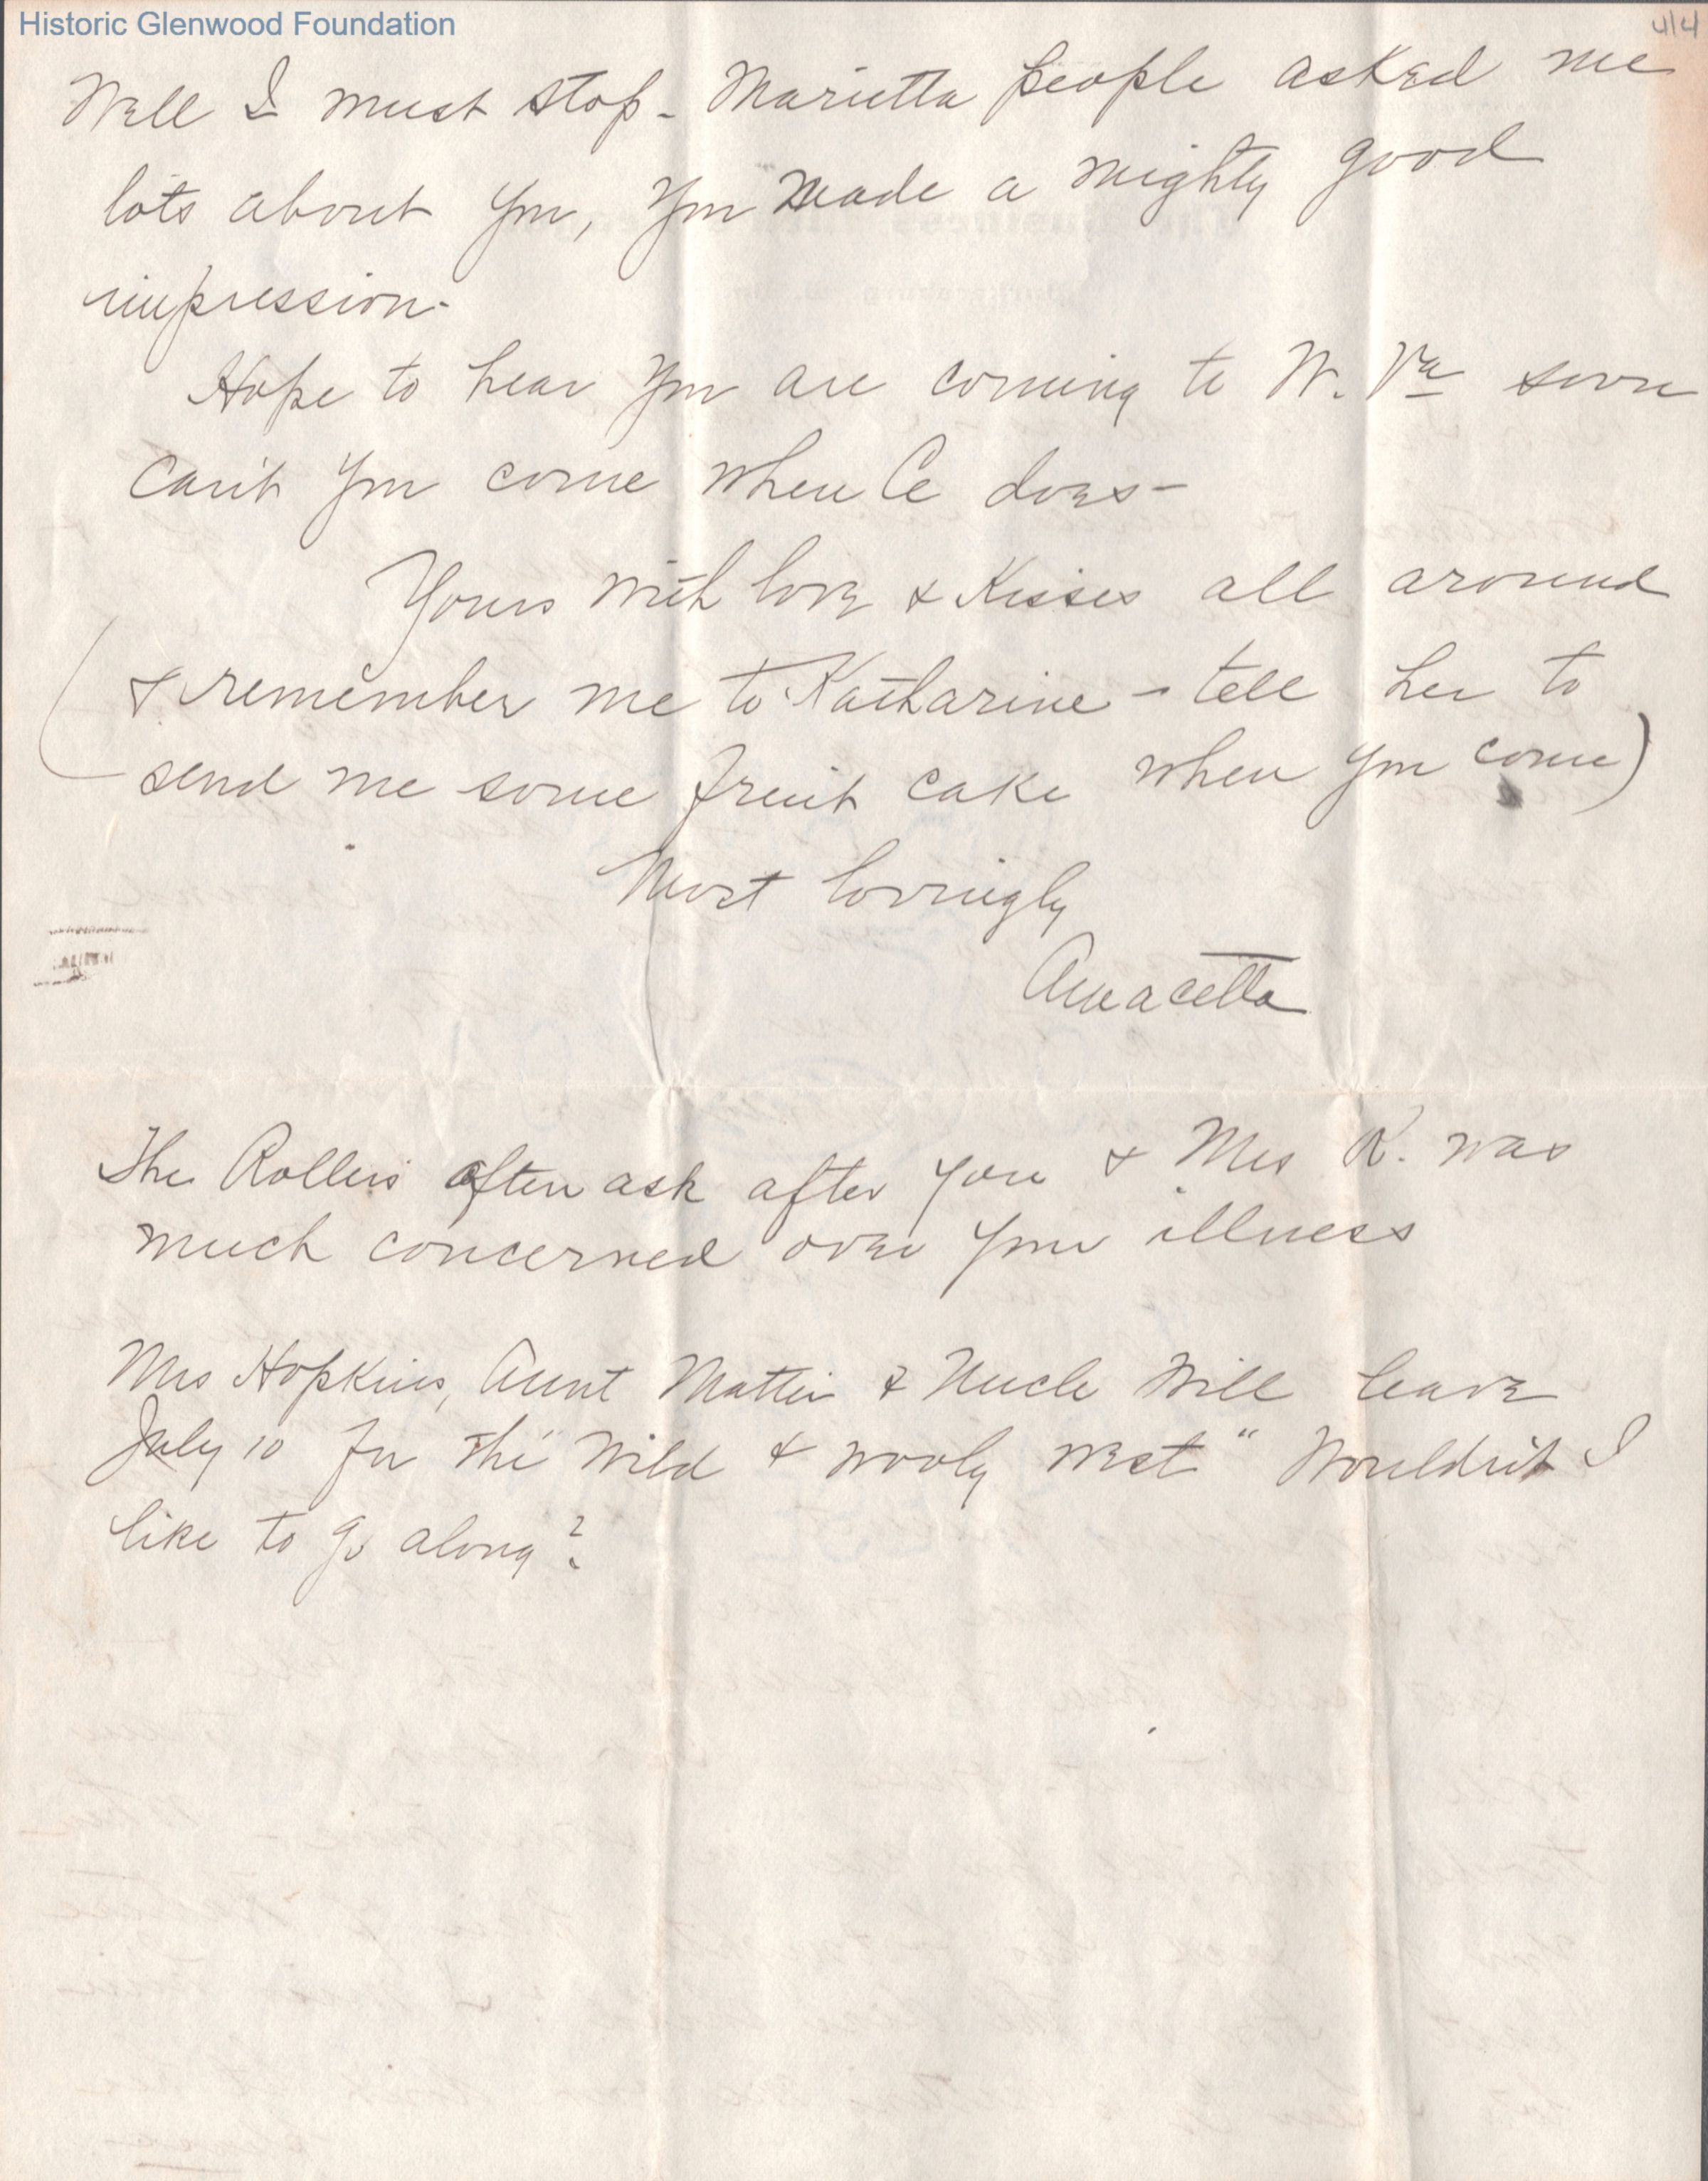 Historic Glenwood Foundation
4/4
Well I must stop - Marietta people asked me
lots about you, you made a mighty good
impression -
Hope to hear you are coming to W. Va soon
Can't you come when Ce does -
Yours with love & Kisses all around
(& remember me to Katharine - tell her to
send me some fruit cake when you come)
Most lovingly
Annacetta
The Rollers often ask after you & Mrs R. was
much concerned over your illness
Mrs Hopkins, Aunt Mattie & Uncle Will leave
July 10 for the "Wild & wooly west" Wouldn't I
like to go along?